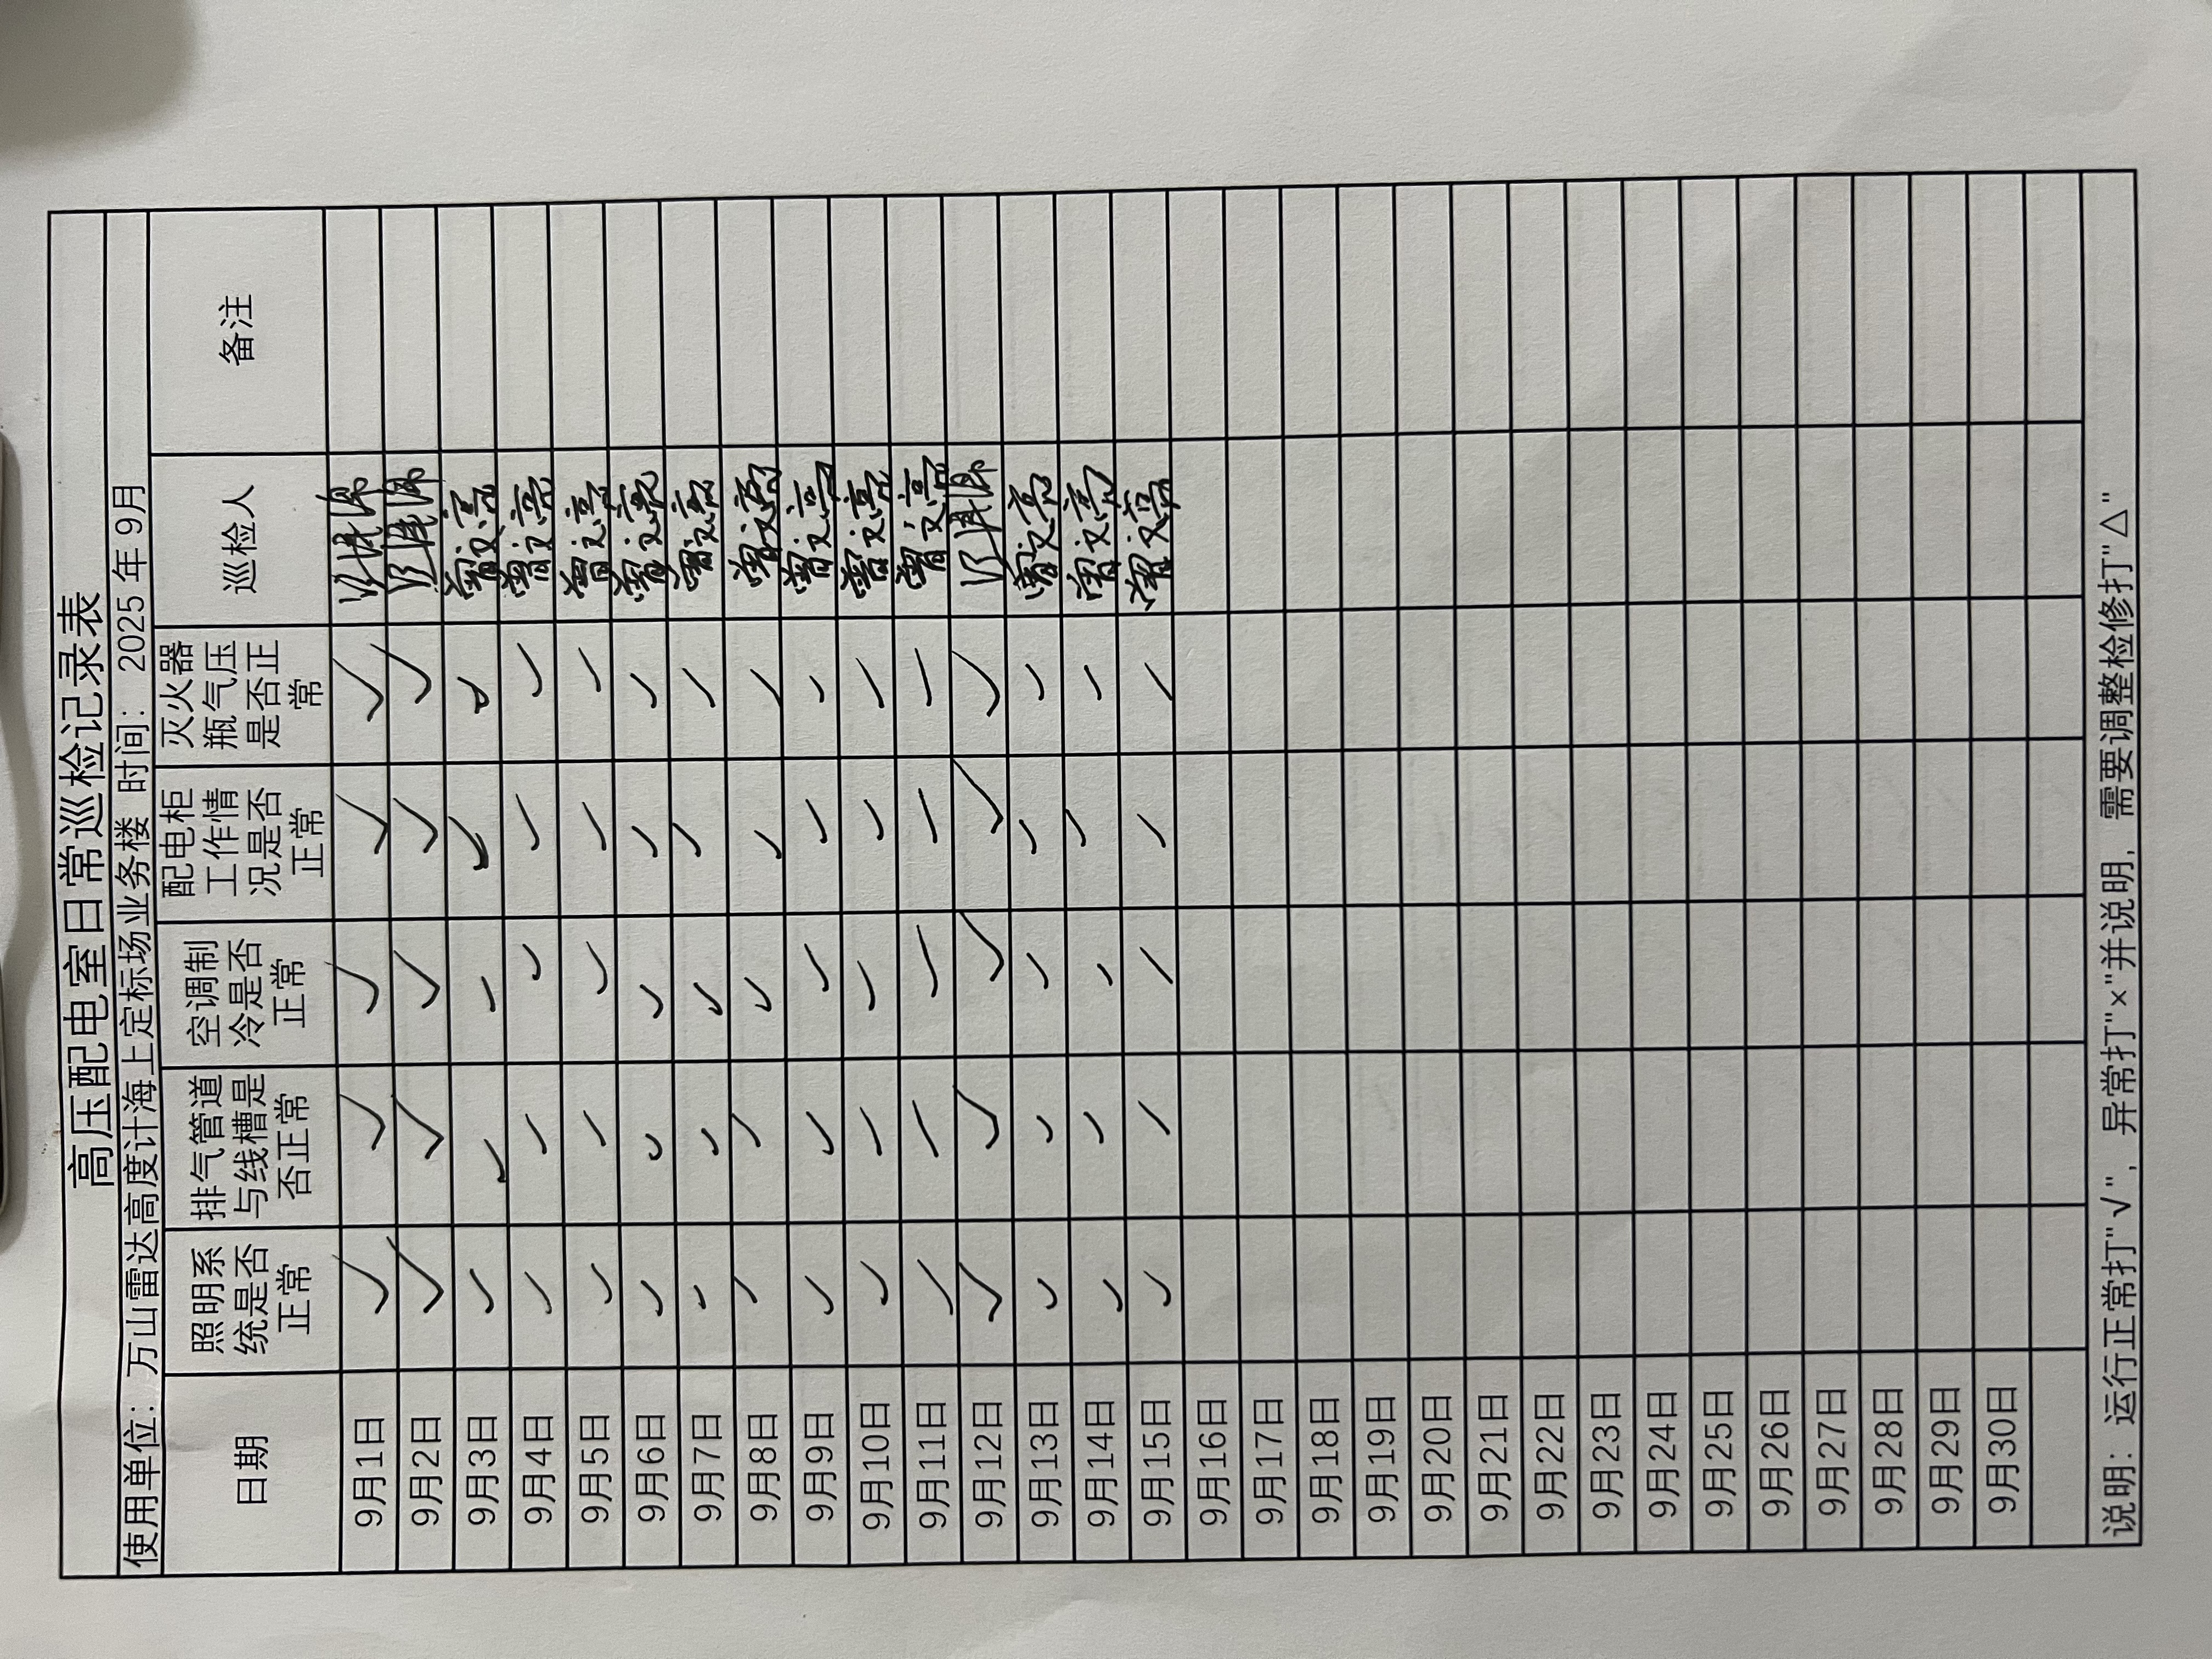 高压配电室日常巡检记录表
使用单位：万山雷达高度计海上定标场业务楼 时间：2025 年 9月
日期 照明系统是否正常 排气管道与线槽是否正常 空调制冷是否正常 配电柜工作情况是否正常 灭火器瓶气压是否正常 巡检人 备注
9月1日 ✓ ✓ ✓ ✓ ✓
9月2日 ✓ ✓ ✓ ✓ ✓
9月3日 ✓ ✓ ✓ ✓ ✓ 曾文亮
9月4日 ✓ ✓ ✓ ✓ ✓ 曾文亮
9月5日 ✓ ✓ ✓ ✓ ✓ 曾文亮
9月6日 ✓ ✓ ✓ ✓ ✓ 曾文亮
9月7日 ✓ ✓ ✓ ✓ ✓ 曾文亮
9月8日 ✓ ✓ ✓ ✓ ✓ 曾文亮
9月9日 ✓ ✓ ✓ ✓ ✓ 曾文亮
9月10日 ✓ ✓ ✓ ✓ ✓ 曾文亮
9月11日 ✓ ✓ ✓ ✓ ✓ 曾文亮
9月12日 ✓ ✓ ✓ ✓ ✓
9月13日 ✓ ✓ ✓ ✓ ✓ 曾文亮
9月14日 ✓ ✓ ✓ ✓ ✓ 曾文亮
9月15日 ✓ ✓ ✓ ✓ ✓ 曾文亮
9月16日
9月17日
9月18日
9月19日
9月20日
9月21日
9月22日
9月23日
9月24日
9月25日
9月26日
9月27日
9月28日
9月29日
9月30日
说明：运行正常打"√"，异常打"×"并说明，需要调整检修打"△"